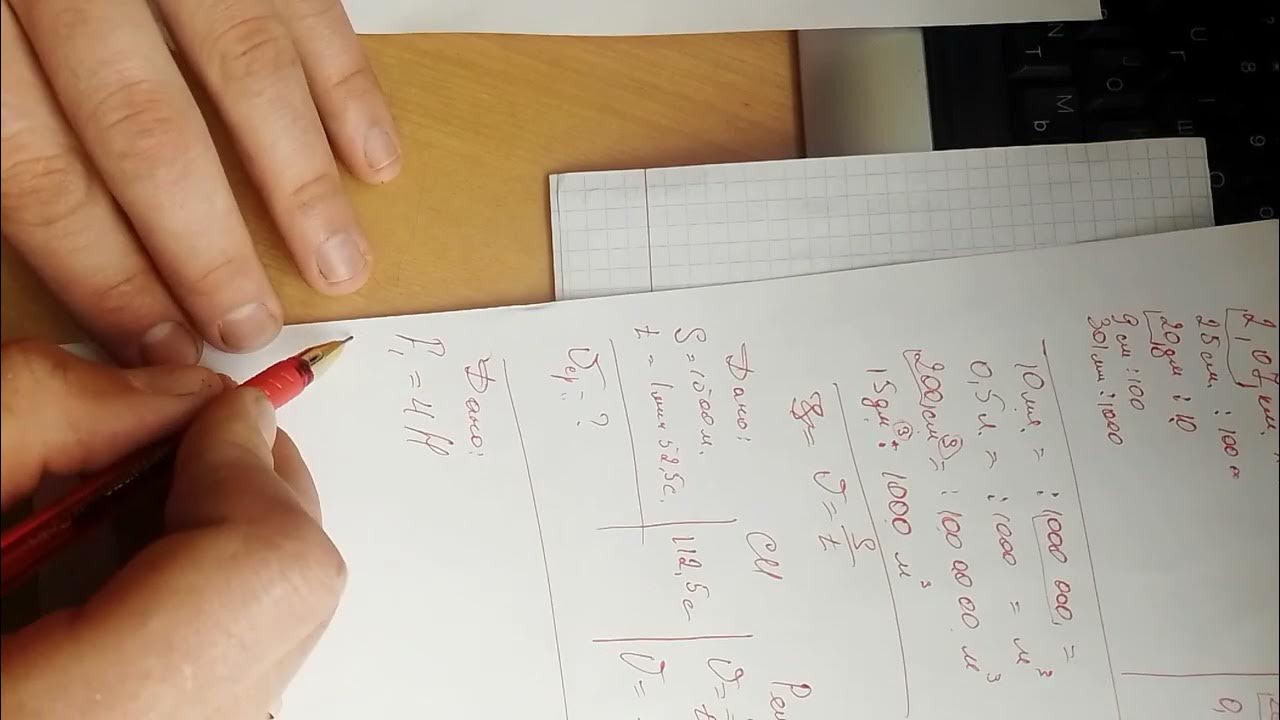 2,07 км.
25 см. : 100 =
20 дм : 10
9 см : 100
301 мм : 1000
0,
10 мл. = : 1000 000, =
0,5 л. = : 1000 = м³
200 см³ = : 10 00 000 м³
15 дм³ : 1000 м³
V = S/t
Дано: СИ
S = 1500 м.
t = 1 мин 52,5 с. 112,5 с
Vср = ?
V =
V =
Дано:
F₁ = 4 Н